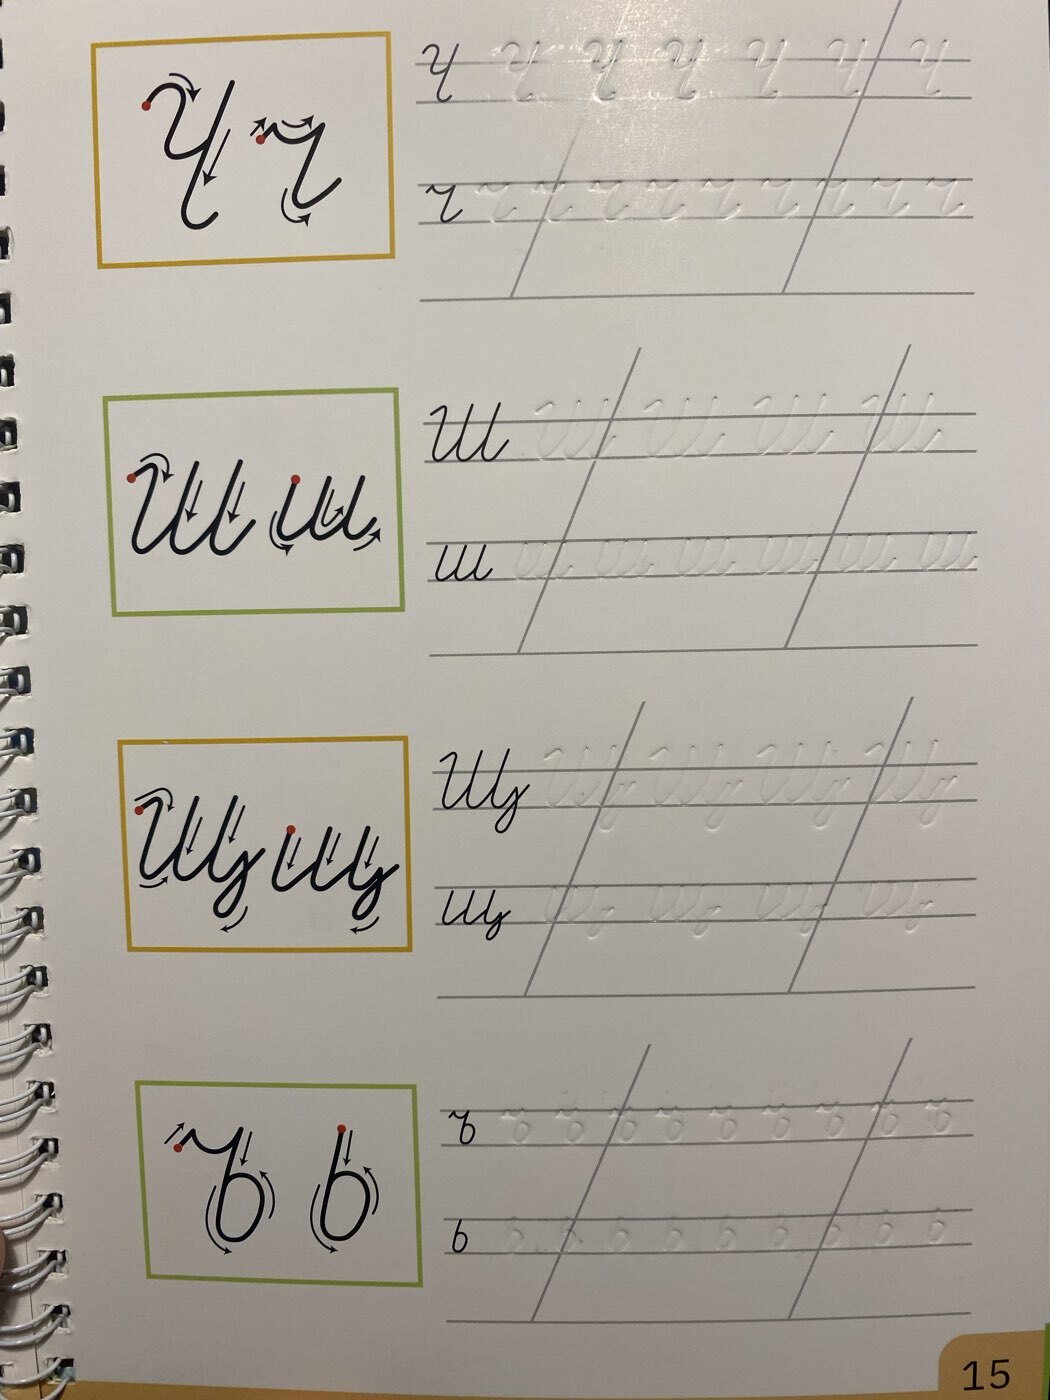 Ч ч
Ч Ч Ч Ч Ч Ч Ч
ч ч ч ч ч ч ч ч ч ч
Ш ш
Ш Ш Ш Ш Ш
ш ш ш ш ш ш ш
Щ щ
Щ Щ Щ Щ Щ
щ щ щ щ щ
ъ ь
ъ ъ ъ ъ ъ ъ ъ ъ ъ ъ
ь ь ь ь ь ь ь ь ь ь
15